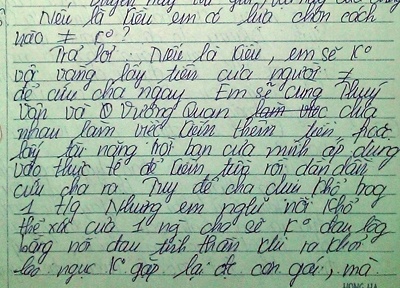 Nếu là Kiều em có lựa chọn cách
nào ≠ K°?
Trả lời: Nếu là Kiều, em sẽ K°
vội vàng lấy tiền của người ≠
để cứu cha ngay. Em sẽ cùng Thuý
Vân và Vương Quan làm việc chia
nhau làm việc kiếm thêm tiền hoặc
lấy tài năng hội hoạ của mình áp dụng
vào thực tế để kiếm tiền rồi dần dần
cứu cha ra. Tuy để cha chịu khổ
1 t/g Nhưng em nghĩ nỗi khổ
thể xác của 1 ng cha sẽ K° đau
bằng nỗi đau tinh thần khi ra khỏi
lao ngục K° gặp lại đc con gái, mà
HONG HA